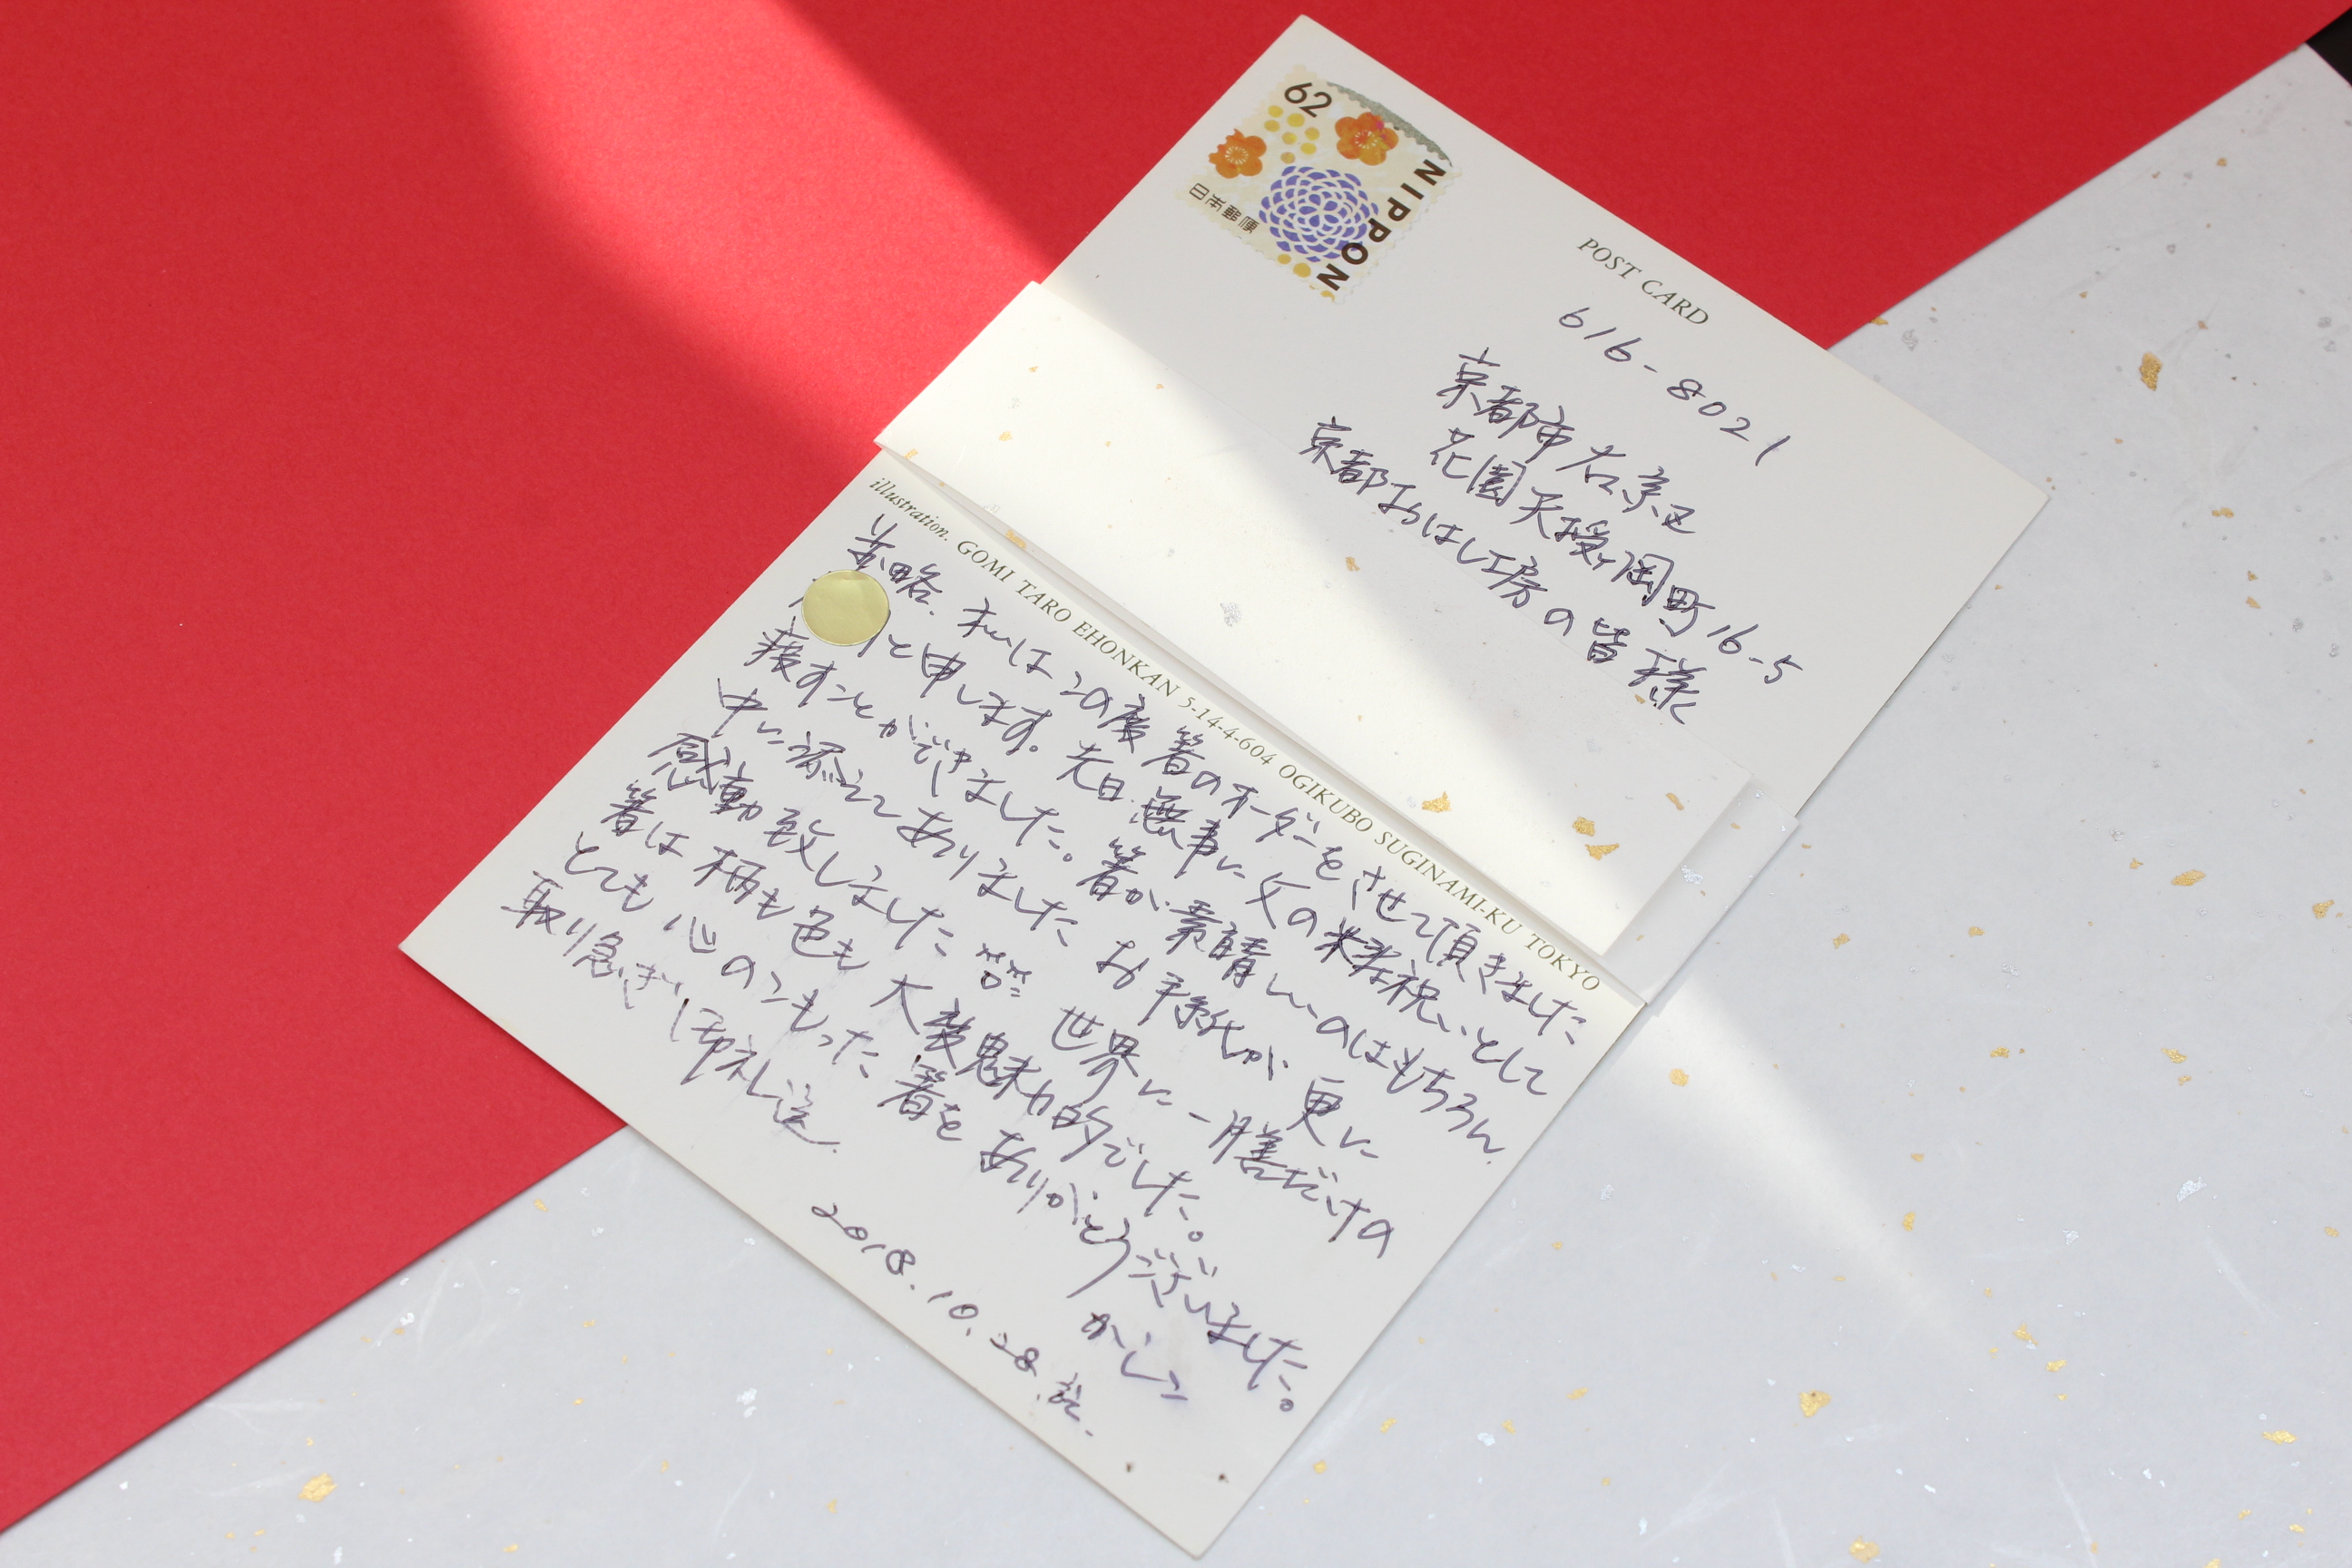 62
NIPPON
日本郵便
POST CARD
616-8021
京都市右京区
花園天授ヶ岡町16-5
京都おはし工房の皆様
illustration. GOMI TARO EHONKAN 5-14-4-604 OGIKUBO SUGINAMI-KU TOKYO
前略. 私はこの度箸のオーダーをさせて頂きました
と申します。先日無事に父の米寿祝いとして
渡すことができました。箸が素晴しいのはもちろん
中に添えてありましたお手紙が更に
感動致しました 笑 世界に一膳だけの
箸は柄も色も大変魅力的でした。
とても心のこもった箸をありがとうございました。
取り急ぎ御礼迄. かしこ
2018.10.28.記.